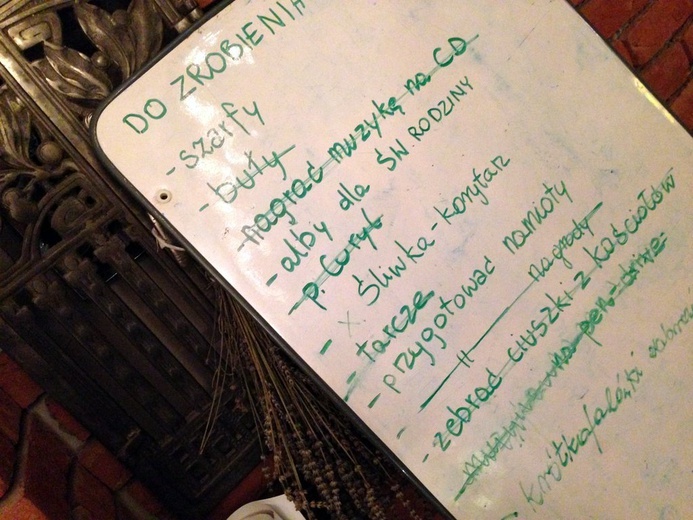 DO ZROBIENIA
- szarfy
- buty
- nagrać muzykę na CD
- alby dla ŚW. RODZINY
- p. Cyryl
- x Śliwka - korytarz
- tarcze
- przygotować namioty
- " nagrody
- zebrać ciuszki z kościołów
- na pen-drive
krótkofalówki